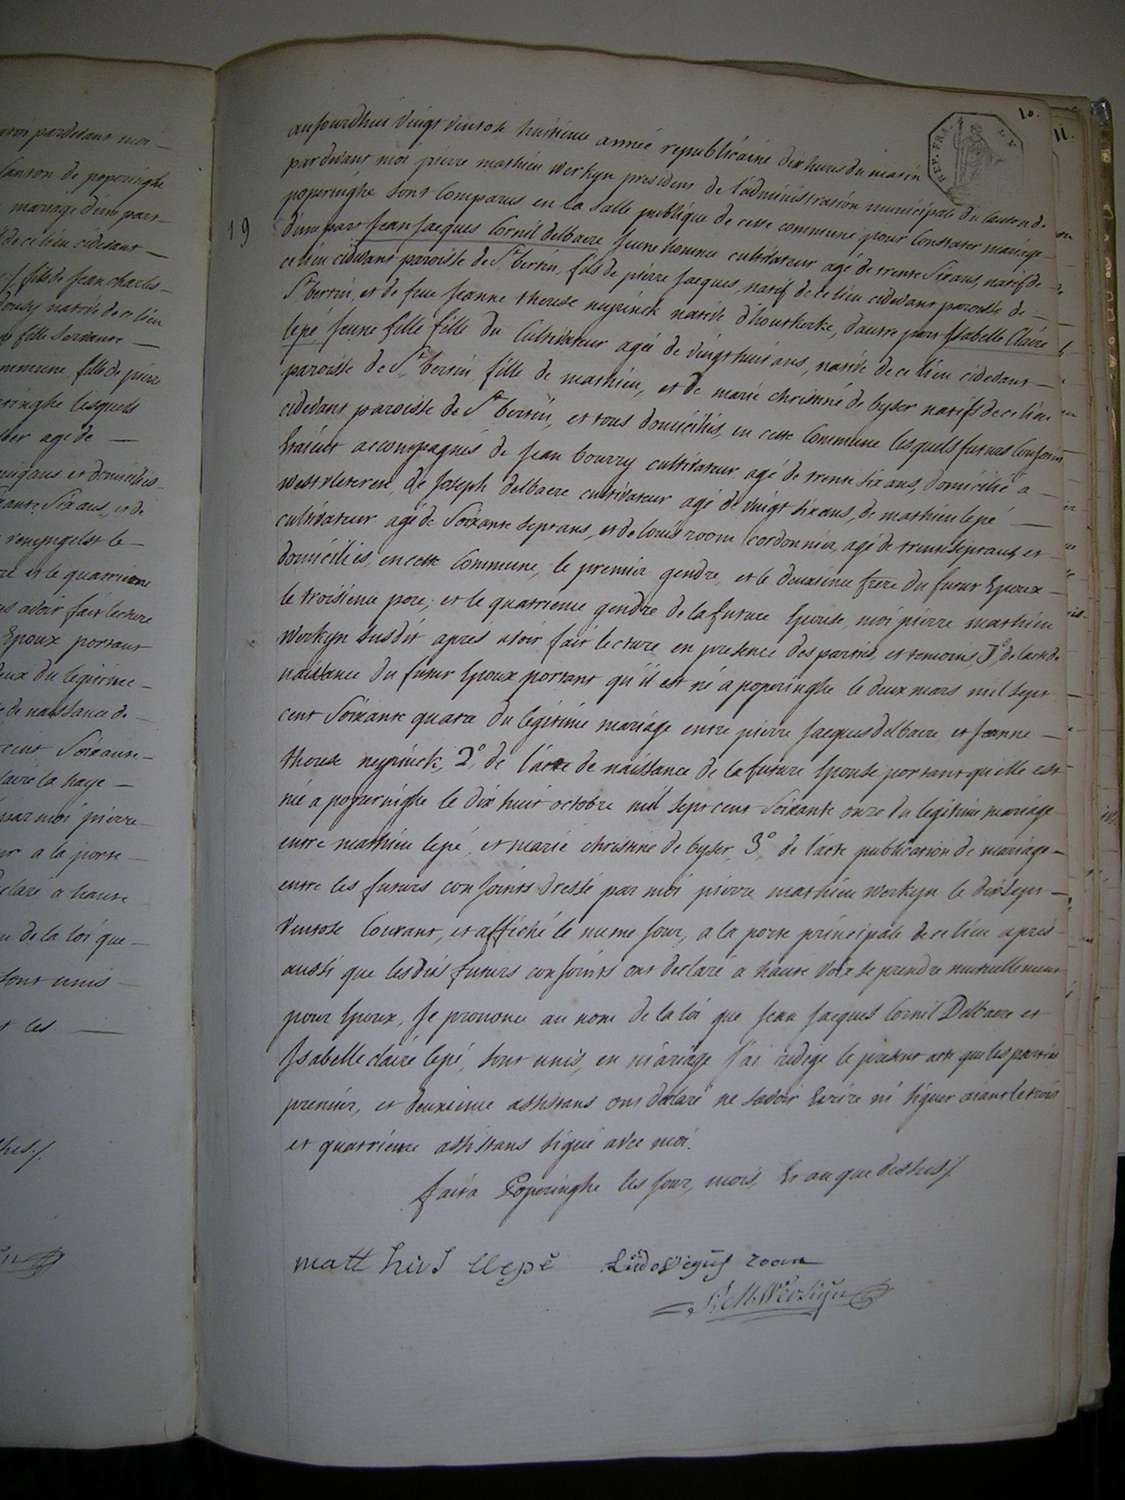 10.
11.
REP. FRA.
19
aujourdhui vingt ventose huitieme année republicaine dix heures du matin
pardevant moi pierre mathieu Werkyn president de l'administration municipale du Canton de
poperinghe sont Comparus en la Salle publique de cette commune pour Constater mariage
d'une part Jean Jacques Cornil delbaere jeune homme cultivateur agé de trente Six ans, natif de
ce lieu cidevant paroisse de St. bertin, fils de pierre Jacques, natif de ce lieu cidevant paroisse de
St. bertin, et de feue Jeanne therese neyrinck native d'houtkerke, d'autre part Isabelle Claire
lepé jeune fille fille du Cultivateur ageé de vingt huit ans, native de ce lieu cidevant
paroisse de St. bertin, fille de mathieu, et de marie christine de byser natifs de ce lieu
cidevant paroisse de St. bertin, et tous domiciliés, en cette Commune lesquels futurs Conjoints
étaient accompagnés de jean bourry cultivateur agé de trente six ans, domicilié a
westvleteren, de Joseph delbaere cultivateur agé de vingt six ans, de mathieu lepé
cultivateur agé de Soixante sept ans, et de louis room cordonnier, agé de trente sept ans et
domiciliés, en cette Commune, le premier gendre, et le deuxieme frere du futur Epoux
le troisieme pere, et le quatrieme gendre de la future Epouse, moi pierre mathieu
Werkyn Susdit aprés avoir fait lecture en presence des parties, et temoins 1° de l'acte de
naissance du futur Epoux portant qu'il est né a poperinghe le deux mars mil sept
cent Soixante quatre du legitime mariage entre pierre Jacques delbaere et Jeanne
therese neyrinck, 2° de l'acte de naissance de la future Epouse portant qu'elle est
née a poperinghe le dix huit octobre mil sept cent Soixante onze du legitime mariage
entre mathieu lepé, et marie christine de byser, 3° de l'acte publication de mariage
entre les futurs conjoints dressé par moi pierre mathieu Werkyn le dix sept
Ventose Courant, et affiché le même jour, a la porte principale de ce lieu aprés
aussi que lesdits futurs conjoints ont declaré a haute voix se prendre mutuellement
pour Epoux, Je prononce au nom de la loi que Jean Jacques Cornil Delbaere et
Isabelle claire lepé, sont unis, en mariage j'ai redigé le present acte que les parties
premier, et deuxieme assistans ont declaré ne savoir Ecrire ni signer aiant le trois
et quatrieme assistans signé avec moi.
fait a Poperinghe les jour, mois, Et an que dessus /.
matthius llepé Ludovicus room
P. M. Werkyn